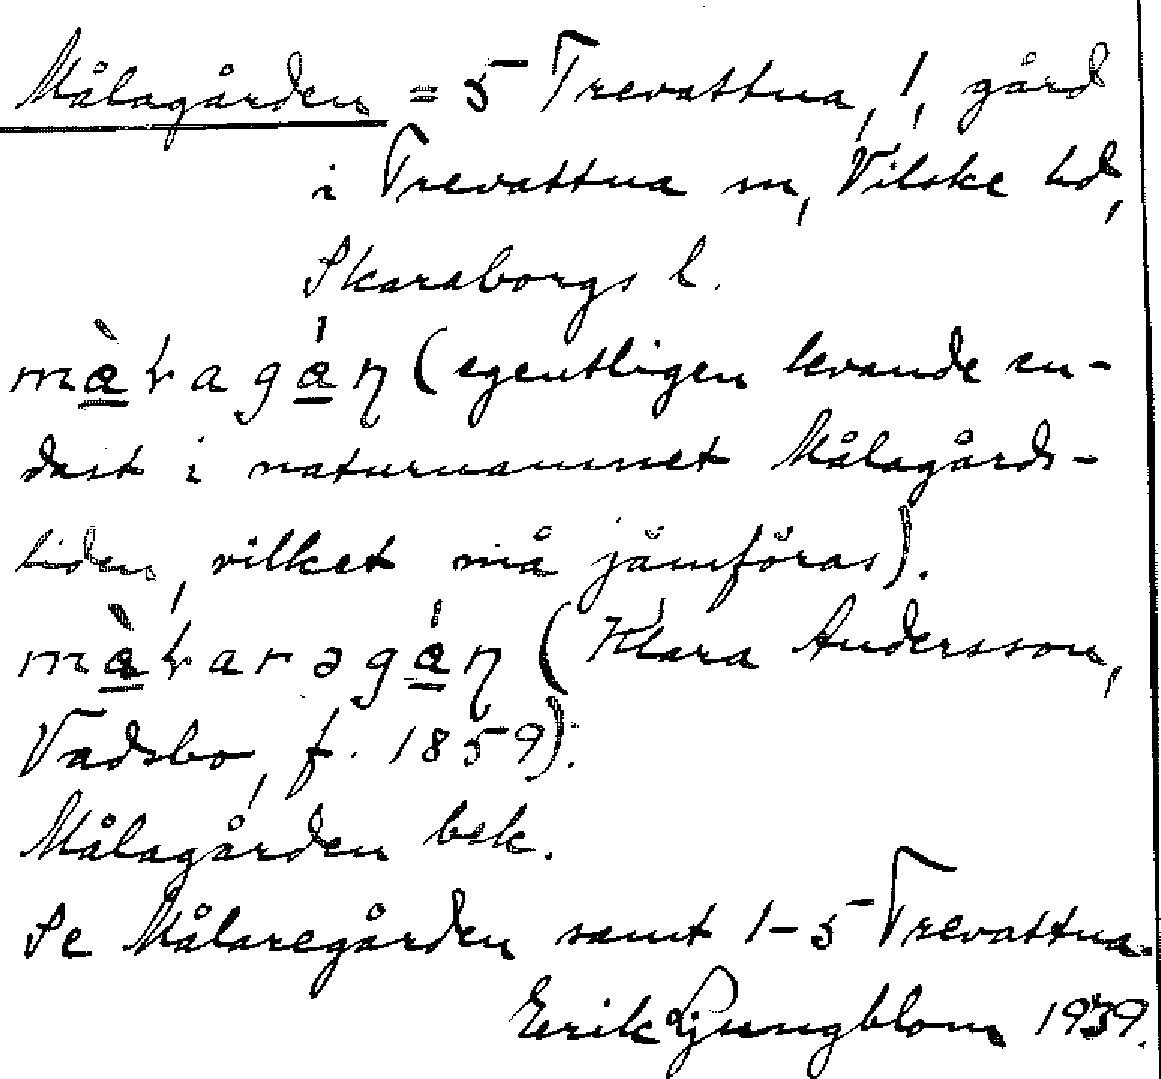 Målagården = 5 Trevattna, 1, gård
i Trevattna sn, Vilske hd,
Skaraborgs l.
(egentligen levande en-
dast i naturnamnet Målagårds-
liden, vilket må jämföras).
(Klara Andersson,
Vadsbo, f. 1859).
Målagården bsk.
Se Målaregården samt 1-5 Trevattna.
Erik Ljungblom 1939.